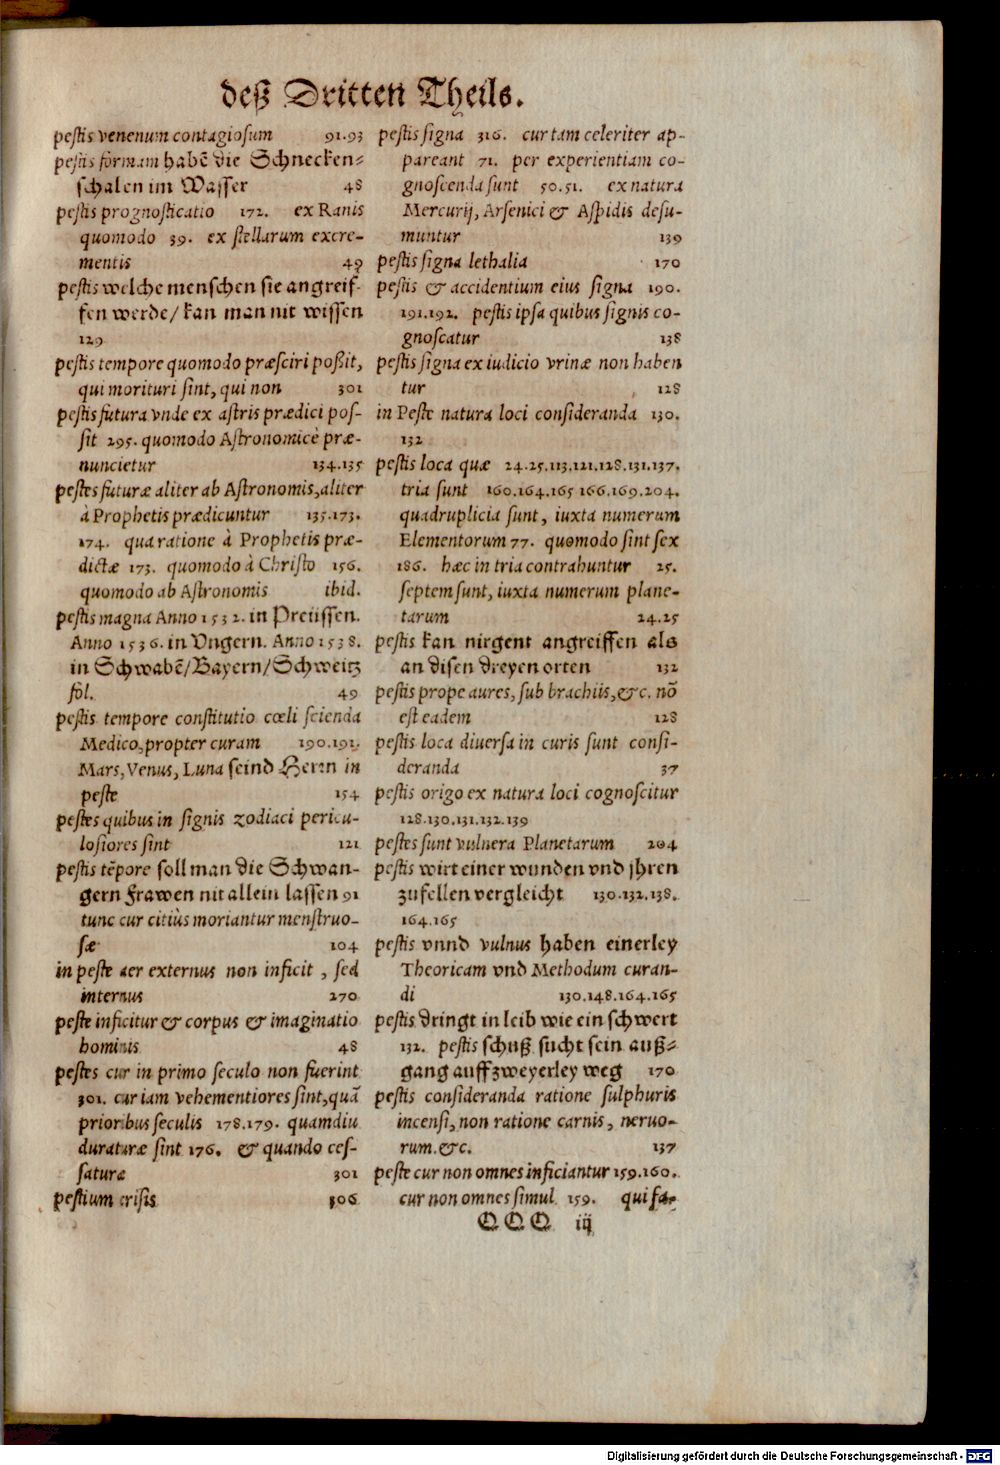 deß Dritten Theils.
pestis venenum contagiosum 91.93
pestis formam habẽ die Schnecken-
schalen im Wasser 48
pestis prognosticatio 172. ex Ranis
quomodo 39. ex stellarum excre-
mentis 49
pestis welche menschen sie angreif-
fen werde/ kan man nit wissen
129
pestis tempore quomodo præsciri poßit,
qui morituri sint, qui non 301
pestis futura vnde ex astris prædici pos-
sit 295. quomodo Astronomicè præ-
nuncietur 134.135
pestes futuræ aliter ab Astronomis, aliter
à Prophetis prædicuntur 135.173.
174. qua ratione à Prophetis præ-
dictæ 173. quomodo à Christo 156.
quomodo ab Astronomis ibid.
pestis magna Anno 1532. in Preüssen.
Anno 1536. in Vngern. Anno 1538.
in Schwabẽ/Bayern/Schweitz
fol. 49
pestis tempore constitutio cœli scienda
Medico, propter curam 190.191.
Mars, Venus, Luna seind Herrn in
peste 154
pestes quibus in signis zodiaci pericu-
losiores sint 121
pestis tẽpore soll man die Schwan-
gern Frawen nit allein lassen 91
tunc cur citiùs moriantur menstruo-
sæ 104
in peste aer externus non inficit, sed
internus 270
peste inficitur & corpus & imaginatio
hominis 48
pestes cur in primo seculo non fuerint
301. cur iam vehementiores sint, quã
prioribus seculis 178.179. quamdiu
duraturæ sint 176. & quando ces-
saturæ 301
pestium crisis 306
pestis signa 316. cur tam celeriter ap-
pareant 71. per experientiam co-
gnoscenda sunt 50.51. ex natura
Mercurij, Arsenici & Aspidis desu-
muntur 139
pestis signa lethalia 170
pestis & accidentium eius signa 190.
191.192. pestis ipsa quibus signis co-
gnoscatur 138
pestis signa ex iudicio vrinæ non haben
tur 128
in Peste natura loci consideranda 130.
132
pestis loca quæ 24.25.113.121.128.131.137.
tria sunt 160.164.165 166.169.204.
quadruplicia sunt, iuxta numerum
Elementorum 77. quomodo sint sex
186. hæc in tria contrahuntur 25.
septem sunt, iuxta numerum plane-
tarum 24.25
pestis kan nirgent angreiffen als
an disen dreyen orten 132
pestis prope aures, sub brachiis, &c. nõ
est eadem 128
pestis loca diuersa in curis sunt consi-
deranda 37
pestis origo ex natura loci cognoscitur
128.130.131.132.139
pestes sunt vulnera Planetarum 204
pestis wirt einer wunden vnd jhren
zufellen vergleicht 130.132.138.
164.165
pestis vnnd vulnus haben einerley
Theoricam vnd Methodum curan-
di 130.148.164.165
pestis dringt in leib wie ein schwert
132. pestis schuß sucht sein auß-
gang auff zweyerley weg 170
pestis consideranda ratione sulphuris
incensi, non ratione carnis, neruo-
rum. &c. 137
peste cur non omnes inficiantur 159.160.
cur non omnes simul 159. qui fa-
QQQ iij
Digitalisierung gefördert durch die Deutsche Forschungsgemeinschaft - DFG